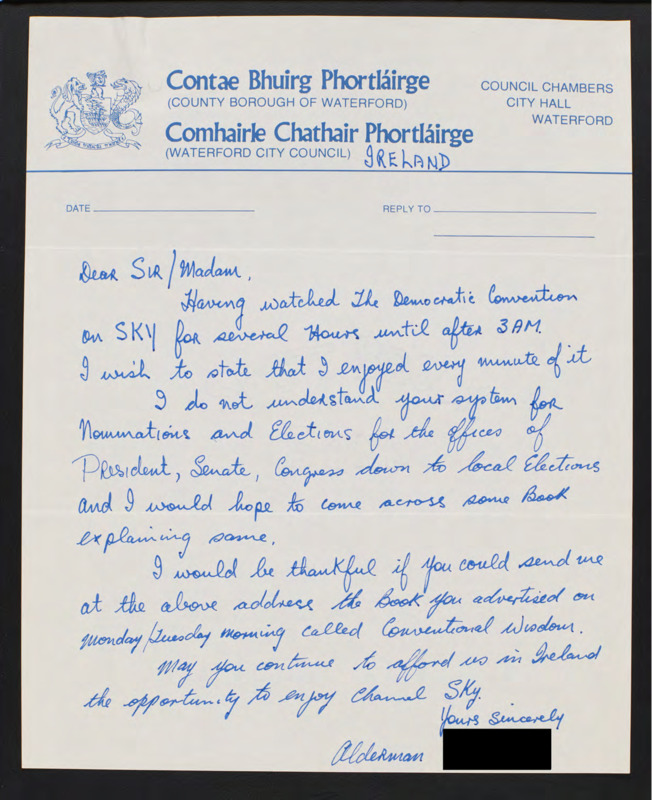 Contae Bhuirg Phortláirge
(COUNTY BOROUGH OF WATERFORD)
Comhairle Chathair Phortláirge
(WATERFORD CITY COUNCIL) IRELAND
COUNCIL CHAMBERS
CITY HALL
WATERFORD
DATE
REPLY TO
Dear Sir/Madam,
Having watched The Democratic Convention
on SKY for several Hours until after 3AM.
I wish to state that I enjoyed every minute of it
I do not understand your system for
Nominations and Elections for the offices of
President, Senate, Congress down to local Elections
and I would hope to come across some Book
explaining same.
I would be thankful if you could send me
at the above address the Book you advertised on
Monday/Tuesday morning called Conventional Wisdom.
May you continue to afford us in Ireland
the opportunity to enjoy Channel SKY.
Yours Sincerely
Alderman